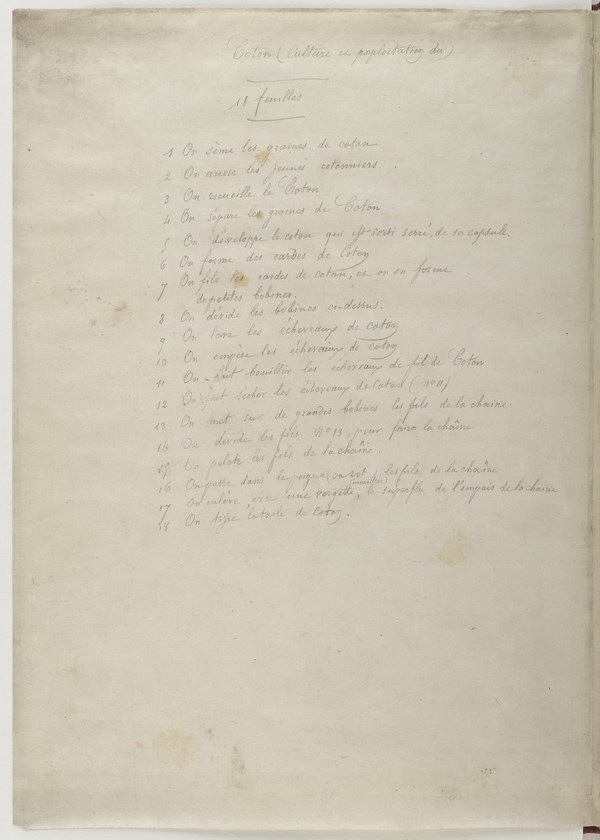 Coton (Culture et exploitation du)
18 feuilles
1 On sème les graines de coton
2 On arrose les jeunes cotonniers.
3 On recueille le Coton
4 On sépare les graines de Coton
5 On développe le coton qui est sorti serré, de sa capsule.
6 On forme des cardes de Coton
7 On file les cardes de coton, et on en forme
de petites bobines.
8 On dévide les bobines ci-dessus.
9 On lave les écheveaux de coton
10 On empèse les écheveaux de coton
11 On fait bouillir les écheveaux de fil de Coton
12 On fait sécher les écheveaux de Coton
13 On met sur de grandes bobines les fils de la chaine
14 On divide les fils nº 13, pour faire la chaîne
15 On pelote les fils de la chaîne.
16 On passe dans le peigne (ou rot) les fils de la chaîne
17 On enlève, avec une vergette, le superflu de l'empois de la chaine
18 On tisse la toile de Coton.